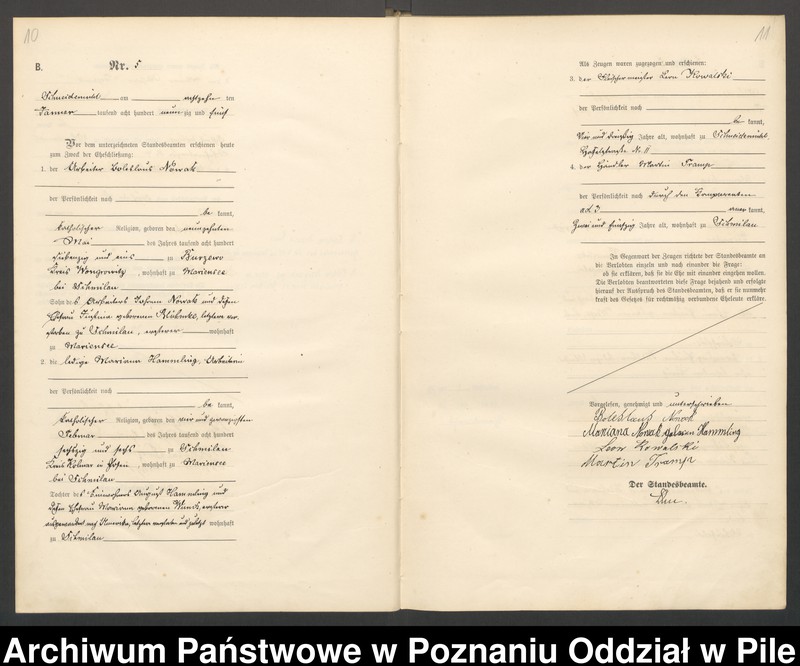 10
B.
Nr. 5
Schneidemühl am achtzehn ten
Januar tausend acht hundert neun zig und fünf
Vor dem unterzeichneten Standesbeamten erschienen heute
zum Zweck der Eheschließung:
1. der Arbeiter Boleslaus Nowak
der Persönlichkeit nach
be kannt,
katholischer Religion, geboren den neunzehnten
Mai des Jahres tausend acht hundert
siebenzig und eins zu
Kreis Wongrowitz, wohnhaft zu Mariensee
bei Schmilau
Sohn des Arbeiters Johann Nowak und dessen
Ehefrau geborenen letztere ver-
storben zu Schmilau, ersterer wohnhaft
zu Mariensee
2. die ledige Mariana Hammling, Arbeiterin
der Persönlichkeit nach
be kannt,
katholischer Religion, geboren den vier und zwanzigsten
Februar des Jahres tausend acht hundert
sechszig und sechs zu Schmilau
Kreis Kolmar in Posen, wohnhaft zu Mariensee
bei Schmilau
Tochter des Einwohners August Hammling und
dessen Ehefrau Mariana geborenen ersterer
ausgewandert nach Amerika, letztere verstorben und zuletzt wohnhaft
zu Schmilau
11
Als Zeugen waren zugezogen und erschienen:
3. der Leon Kowalski
der Persönlichkeit nach
be kannt,
vier und dreißig Jahre alt, wohnhaft zu Schneidemühl,
4. der Händler Martin Tramp
der Persönlichkeit nach durch den Comparenten
ad 3 aner kannt,
zwei und fünfzig Jahre alt, wohnhaft zu Schmilau
In Gegenwart der Zeugen richtete der Standesbeamte an
die Verlobten einzeln und nach einander die Frage:
ob sie erklären, daß sie die Ehe mit einander eingehen wollen.
Die Verlobten beantworteten diese Frage bejahend und erfolgte
hierauf der Ausspruch des Standesbeamten, daß er sie nunmehr
kraft des Gesetzes für rechtmäßig verbundene Eheleute erkläre.
Vorgelesen, genehmigt und unterschrieben
Boleslaus Nowak
Mariana Nowak geboren Hammling
Leon Kowalski
Martin Tramp
Der Standesbeamte.
Archiwum Państwowe w Poznaniu Oddział w Pile